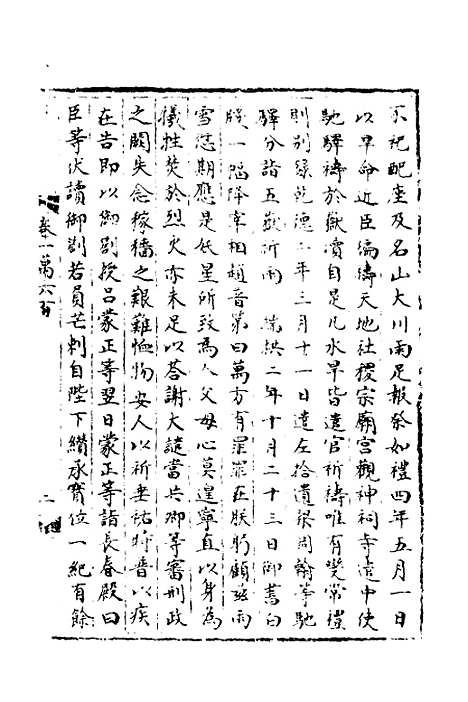 不祀配座及名山大川雨足報祭如禮四年五月一日
以旱命近臣徧禱天地社稷宗廟宮觀神祠寺遣中使
馳驛禱於嶽瀆自是凡水旱皆遣官祈禱唯有變常禮
則別錄乾德二年三月十一日遣左拾遺梁周翰等馳
驛分詣五嶽祈雨 端拱二年十月二十三日御書白
牋一幅降宰相趙普第曰萬方有罪罪在朕躬顧茲雨
雪愆期應是妖星所致為人父母心莫遑寧直以身為
犧牲焚於烈火亦未足以荅謝大譴當共卿等審刑政
之闕失念稼穡之艱難恤物安人以祈垂祐時普以疾
在告即以御劄授呂蒙正等翌日蒙正等詣長春殿曰
臣等伏讀御劄若負芒刺自陛下纘承寶位一紀有餘
卷一萬六百
二